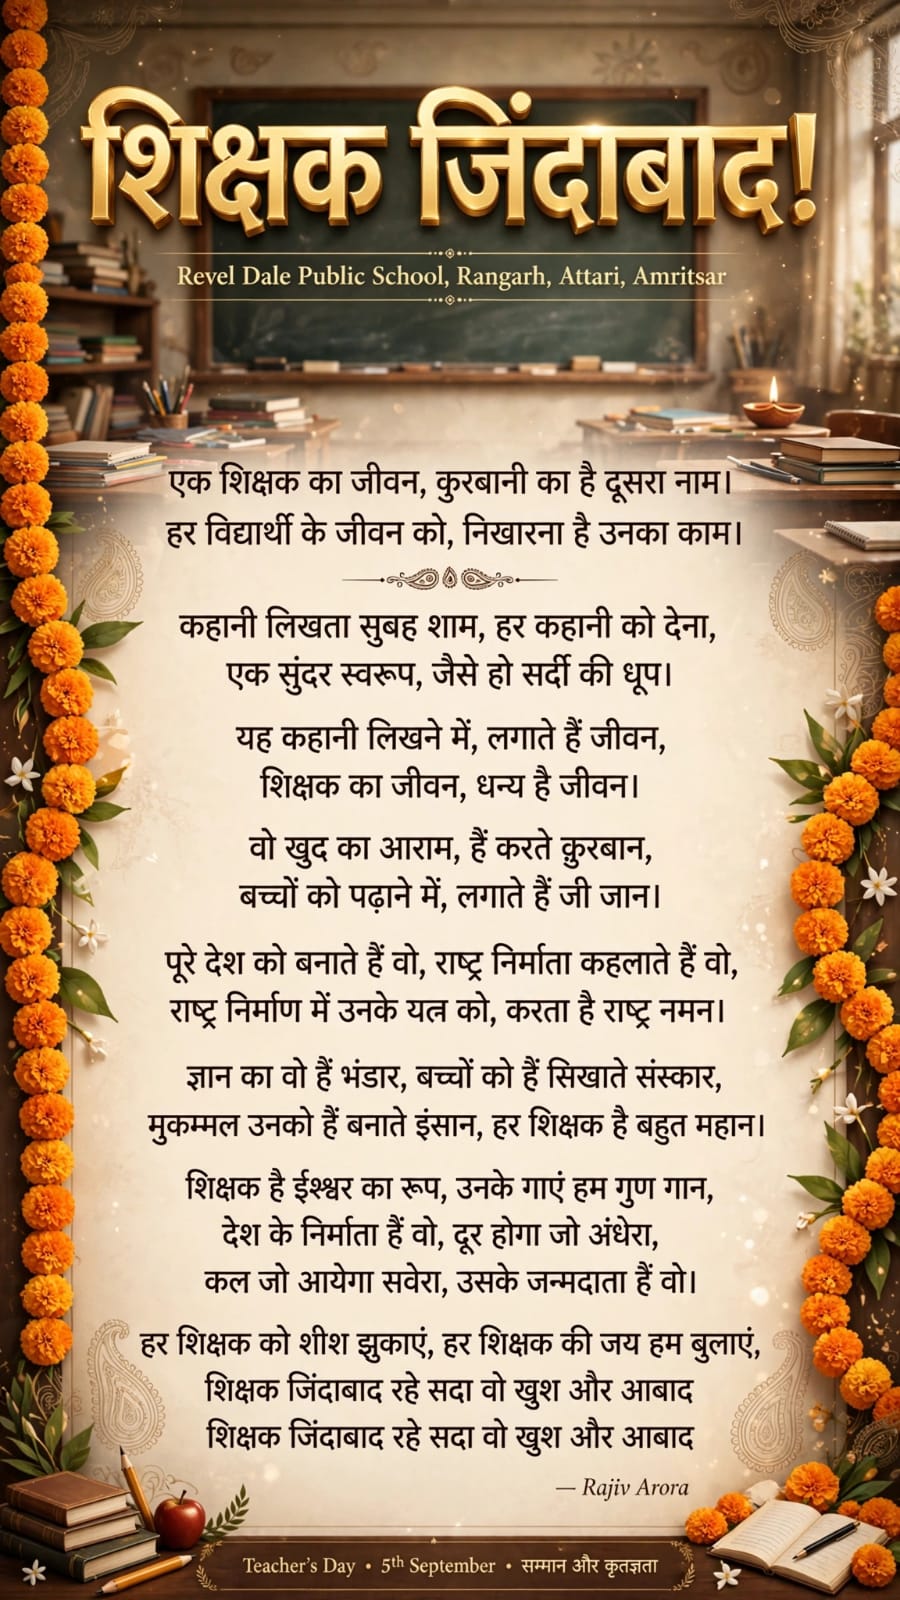 शिक्षक जिंदाबाद!
Revel Dale Public School, Rangarh, Attari, Amritsar
एक शिक्षक का जीवन, कुरबानी का है दूसरा नाम।
हर विद्यार्थी के जीवन को, निखारना है उनका काम।
कहानी लिखता सुबह शाम, हर कहानी को देना,
एक सुंदर स्वरूप, जैसे हो सर्दी की धूप।
यह कहानी लिखने में, लगाते हैं जीवन,
शिक्षक का जीवन, धन्य है जीवन।
वो खुद का आराम, हैं करते क़ुरबान,
बच्चों को पढ़ाने में, लगाते हैं जी जान।
पूरे देश को बनाते हैं वो, राष्ट्र निर्माता कहलाते हैं वो,
राष्ट्र निर्माण में उनके यत्न को, करता है राष्ट्र नमन।
ज्ञान का वो हैं भंडार, बच्चों को हैं सिखाते संस्कार,
मुकम्मल उनको हैं बनाते इंसान, हर शिक्षक है बहुत महान।
शिक्षक है ईश्वर का रूप, उनके गाएं हम गुण गान,
देश के निर्माता हैं वो, दूर होगा जो अंधेरा,
कल जो आयेगा सवेरा, उसके जन्मदाता हैं वो।
हर शिक्षक को शीश झुकाएं, हर शिक्षक की जय हम बुलाएं,
शिक्षक जिंदाबाद रहे सदा वो खुश और आबाद
शिक्षक जिंदाबाद रहे सदा वो खुश और आबाद
— Rajiv Arora
Teacher's Day • 5th September • सम्मान और कृतज्ञता